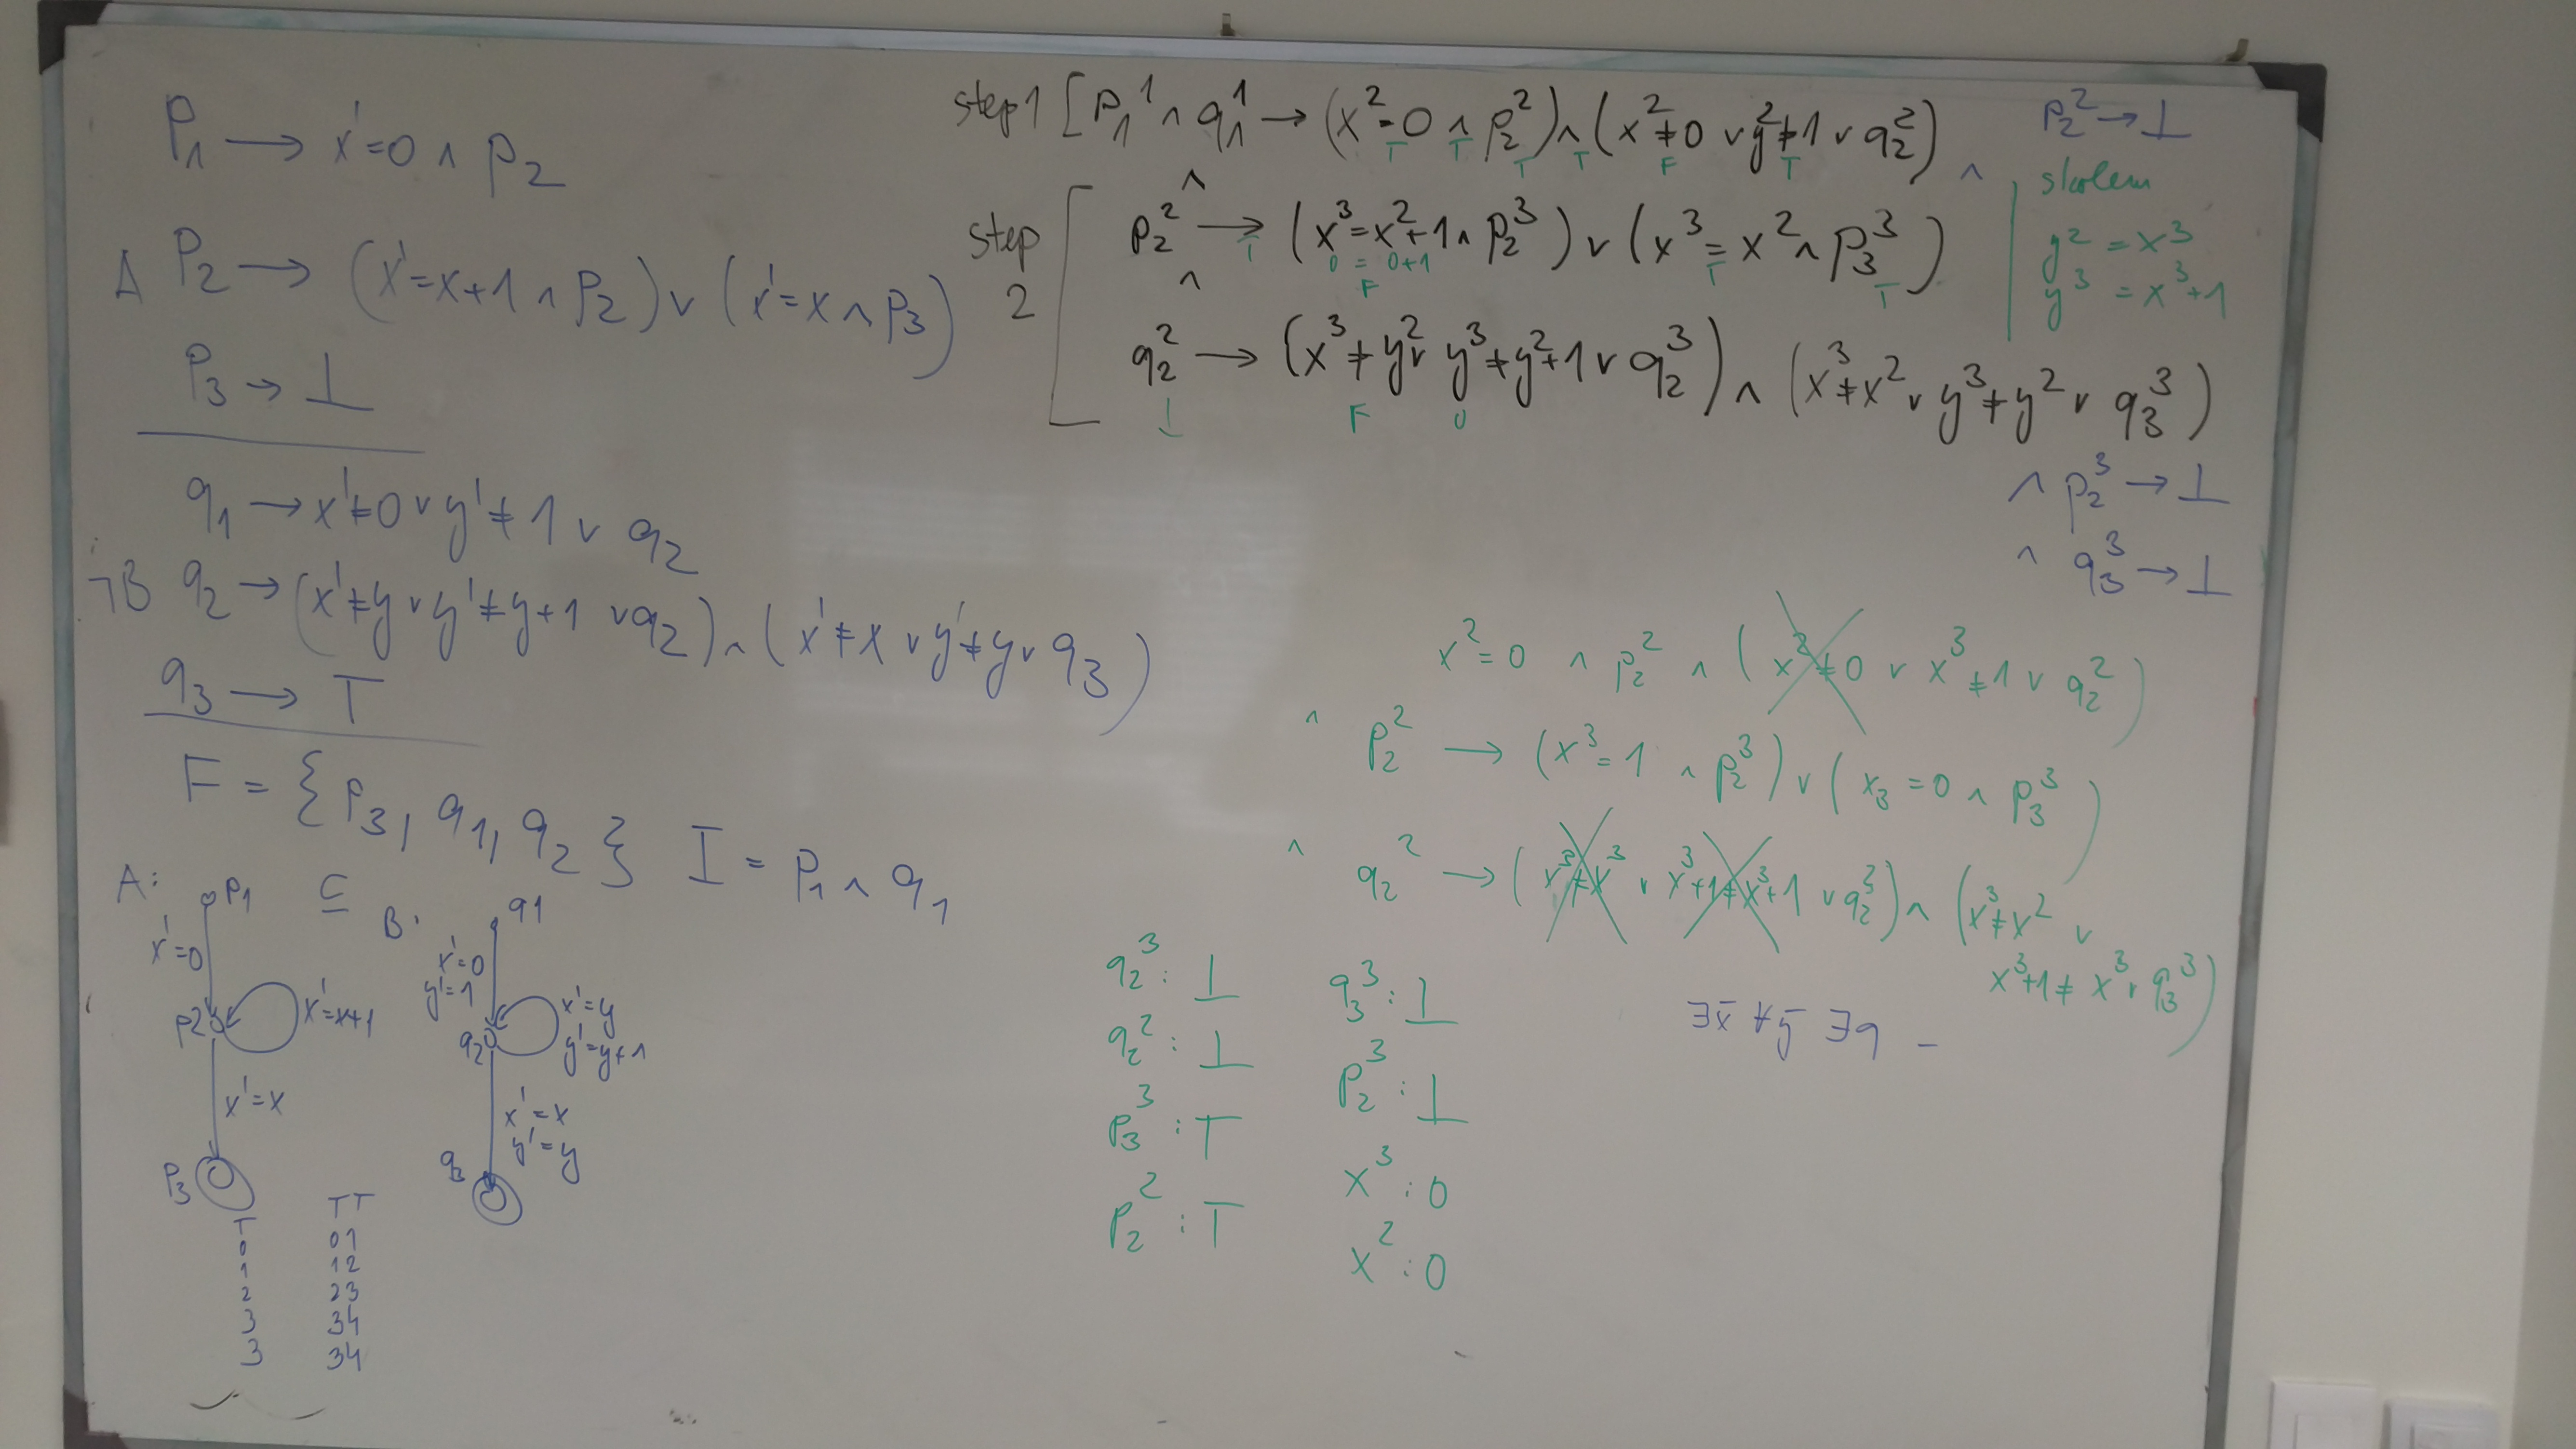 P₁ → x'=0 ∧ P₂
A P₂ → (x'=x+1 ∧ P₂) ∨ (x'=x ∧ P₃)
P₃ → ⊥
q₁ → x'≠0 ∨ y'≠1 ∨ q₂
¬B q₂ → (x'≠y ∨ y'≠y+1 ∨ q₂) ∧ (x'≠x ∨ y'≠y ∨ q₃)
q₃ → T
F = {P₃, q₁, q₂} I = P₁ ∧ q₁
A: ⊆ B:
P1
x'=0
P2
x'=x+1
x'=x
P₃
q1
x'=0
y'=1
q₂
x'=y
y'=y+1
x'=x
y'=y
T TT
0 01
1 12
2 23
3 34
3 34
step 1 [P₁¹ ∧ q₁¹ → (x²=0 ∧ P₂²) ∧ (x²≠0 ∨ y²≠1 ∨ q₂²) ∧
T T T T F T
∧
step 2 [ P₂² → (x³=x²+1 ∧ P₂³) ∨ (x³=x² ∧ P₃³)
T 0 = 0+1 T T
F
∧
q₂² → (x³≠y² ∨ y³≠y²+1 ∨ q₂³) ∧ (x³≠x² ∨ y³≠y² ∨ q₃³)
⊥ F 0
P₂² → ⊥
skolem
y² = x³
y³ = x³+1
∧ P₂³ → ⊥
∧ q₃³ → ⊥
x²=0 ∧ P₂² ∧ (x²≠0 ∨ x³≠1 ∨ q₂²)
∧ P₂² → (x³=1 ∧ P₂³) ∨ (x₃=0 ∧ P₃³)
∧ q₂² → (x³≠x³ ∨ x³+1≠x³+1 ∨ q₂³) ∧ (x³≠x² ∨
x³+1≠x³ ∨ q₃³)
∃x̄ ∀ȳ ∃q –
q₂³ : ⊥ q₃³ : ⊥
q₂² : ⊥ P₂³ : ⊥
P₃³ : T x³ : 0
P₂² : T x² : 0